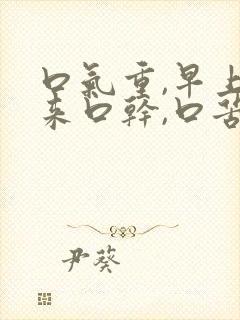 口氣重,早上
來口幹,口苦
尹葵